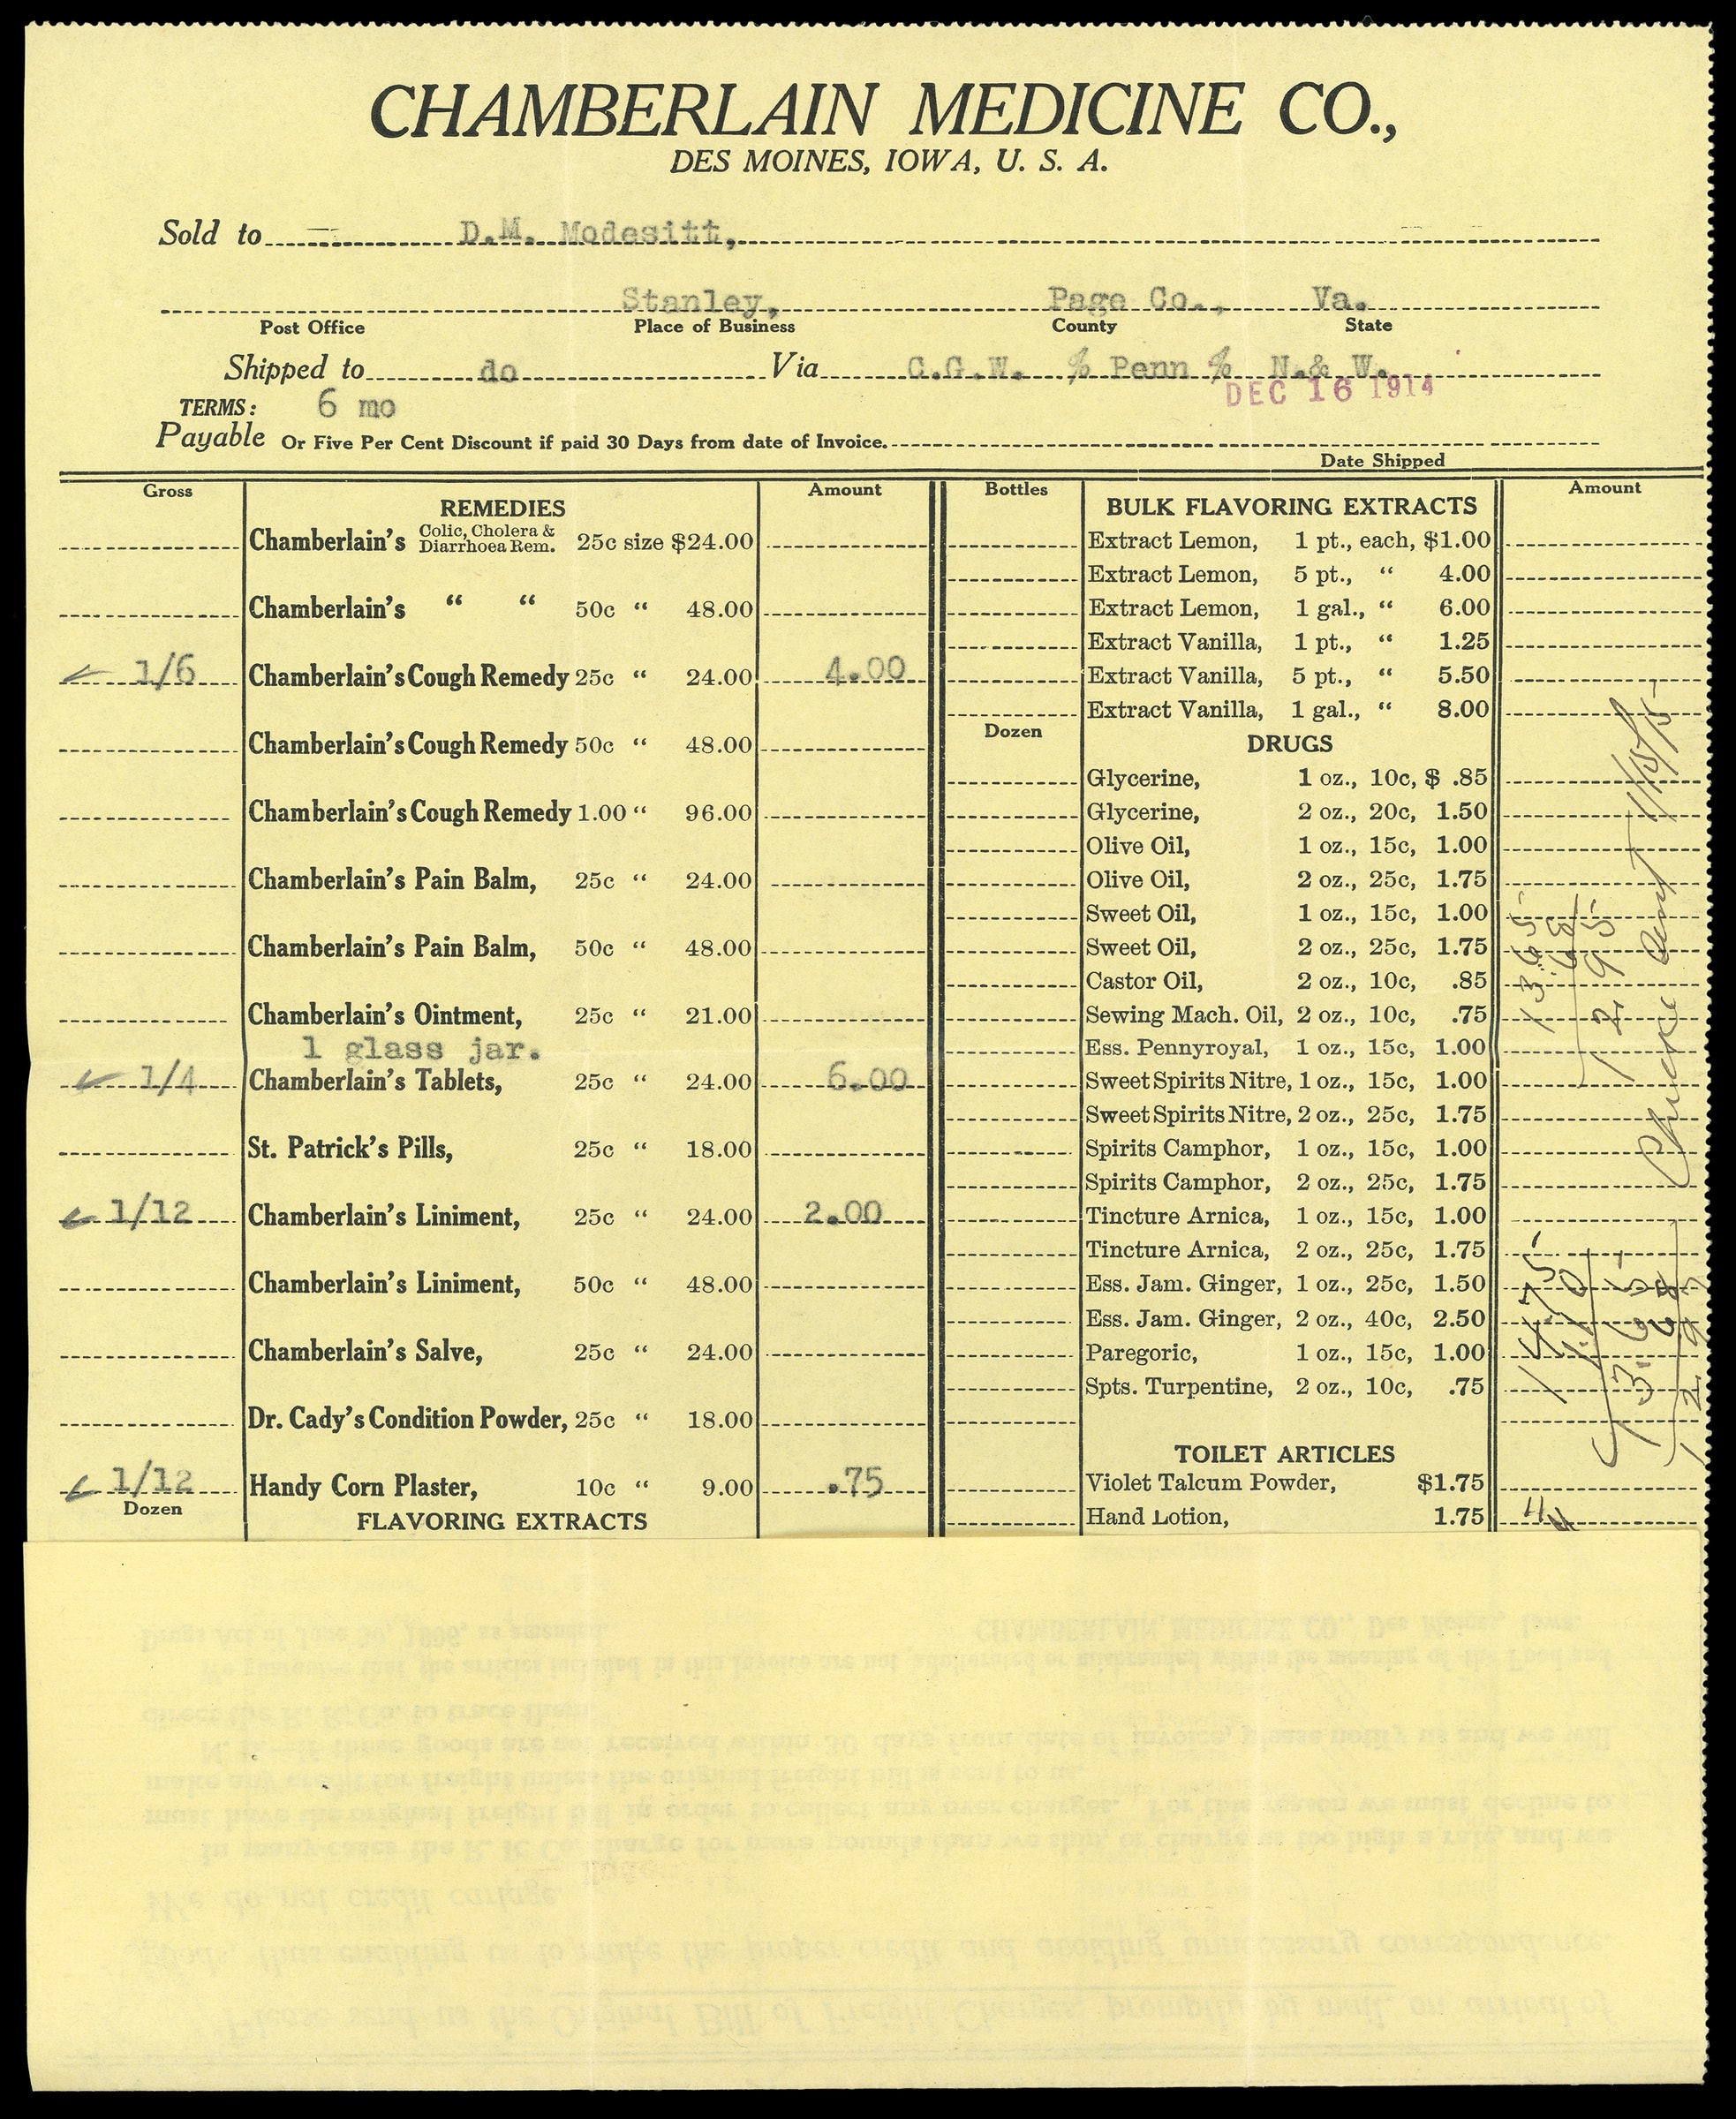 CHAMBERLAIN MEDICINE CO.,
DES MOINES, IOWA, U. S. A.
Sold to D.M. Modesitt,
Stanley, Page Co., Va.
Post Office Place of Business County State
Shipped to do Via C.G.W. % Penn % N.& W.
DEC 16 1914
TERMS: 6 mo
Payable Or Five Per Cent Discount if paid 30 Days from date of Invoice.
Date Shipped
Gross Amount
REMEDIES
Chamberlain's Colic, Cholera & Diarrhoea Rem. 25c size $24.00
Chamberlain's “ “ 50c “ 48.00
1/6 Chamberlain's Cough Remedy 25c “ 24.00 4.00
Chamberlain's Cough Remedy 50c “ 48.00
Chamberlain's Cough Remedy 1.00 “ 96.00
Chamberlain's Pain Balm, 25c “ 24.00
Chamberlain's Pain Balm, 50c “ 48.00
Chamberlain's Ointment, 25c “ 21.00
1 glass jar.
1/4 Chamberlain's Tablets, 25c “ 24.00 6.00
St. Patrick's Pills, 25c “ 18.00
1/12 Chamberlain's Liniment, 25c “ 24.00 2.00
Chamberlain's Liniment, 50c “ 48.00
Chamberlain's Salve, 25c “ 24.00
Dr. Cady's Condition Powder, 25c “ 18.00
1/12 Handy Corn Plaster, 10c “ 9.00 .75
Dozen
FLAVORING EXTRACTS
Bottles Amount
BULK FLAVORING EXTRACTS
Extract Lemon, 1 pt., each, $1.00
Extract Lemon, 5 pt., “ 4.00
Extract Lemon, 1 gal., “ 6.00
Extract Vanilla, 1 pt., “ 1.25
Extract Vanilla, 5 pt., “ 5.50
Extract Vanilla, 1 gal., “ 8.00
Dozen
DRUGS
Glycerine, 1 oz., 10c, $ .85
Glycerine, 2 oz., 20c, 1.50
Olive Oil, 1 oz., 15c, 1.00
Olive Oil, 2 oz., 25c, 1.75
Sweet Oil, 1 oz., 15c, 1.00
Sweet Oil, 2 oz., 25c, 1.75
Castor Oil, 2 oz., 10c, .85
Sewing Mach. Oil, 2 oz., 10c, .75
Ess. Pennyroyal, 1 oz., 15c, 1.00
Sweet Spirits Nitre, 1 oz., 15c, 1.00
Sweet Spirits Nitre, 2 oz., 25c, 1.75
Spirits Camphor, 1 oz., 15c, 1.00
Spirits Camphor, 2 oz., 25c, 1.75
Tincture Arnica, 1 oz., 15c, 1.00
Tincture Arnica, 2 oz., 25c, 1.75
Ess. Jam. Ginger, 1 oz., 25c, 1.50
Ess. Jam. Ginger, 2 oz., 40c, 2.50
Paregoric, 1 oz., 15c, 1.00
Spts. Turpentine, 2 oz., 10c, .75
TOILET ARTICLES
Violet Talcum Powder, $1.75
Hand Lotion, 1.75
13.65
68
12 95
14.75
1.10
13.65
68
12.97